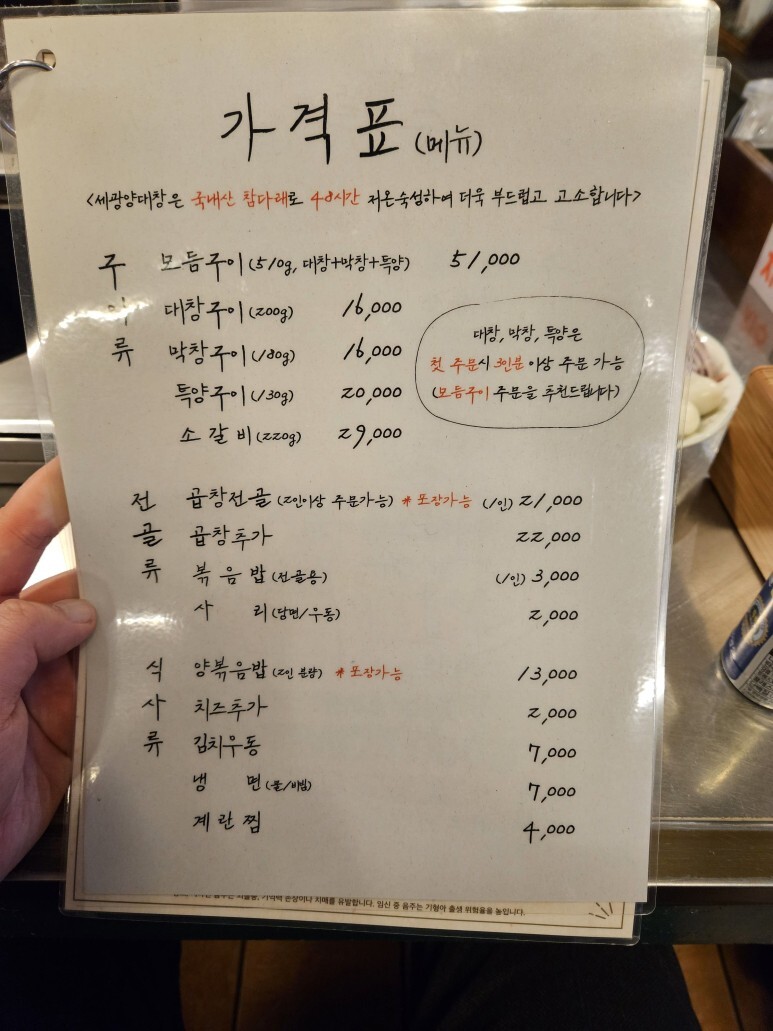 가격표 (메뉴)
<세광양대창은 국내산 참다래로 48시간 저온숙성하여 더욱 부드럽고 고소합니다>
구이류
모듬구이 (510g, 대창+막창+특양) 51,000
대창구이 (200g) 16,000
막창구이 (180g) 16,000
특양구이 (130g) 20,000
소갈비 (220g) 29,000
대창, 막창, 특양은
첫 주문시 3인분 이상 주문 가능
(모듬구이 주문을 추천드립니다)
전골류
곱창전골 (2인이상 주문가능) #포장가능 (1인) 21,000
곱창추가 22,000
볶음밥 (전골용) (1인) 3,000
사리 (당면/우동) 2,000
식사류
양볶음밥 (2인 분량) #포장가능 13,000
치즈추가 2,000
김치우동 7,000
냉면 (물/비빔) 7,000
계란찜 4,000
기억력 손상이나 치매를 유발합니다. 임신 중 음주는 기형아 출생 위험을 높입니다.